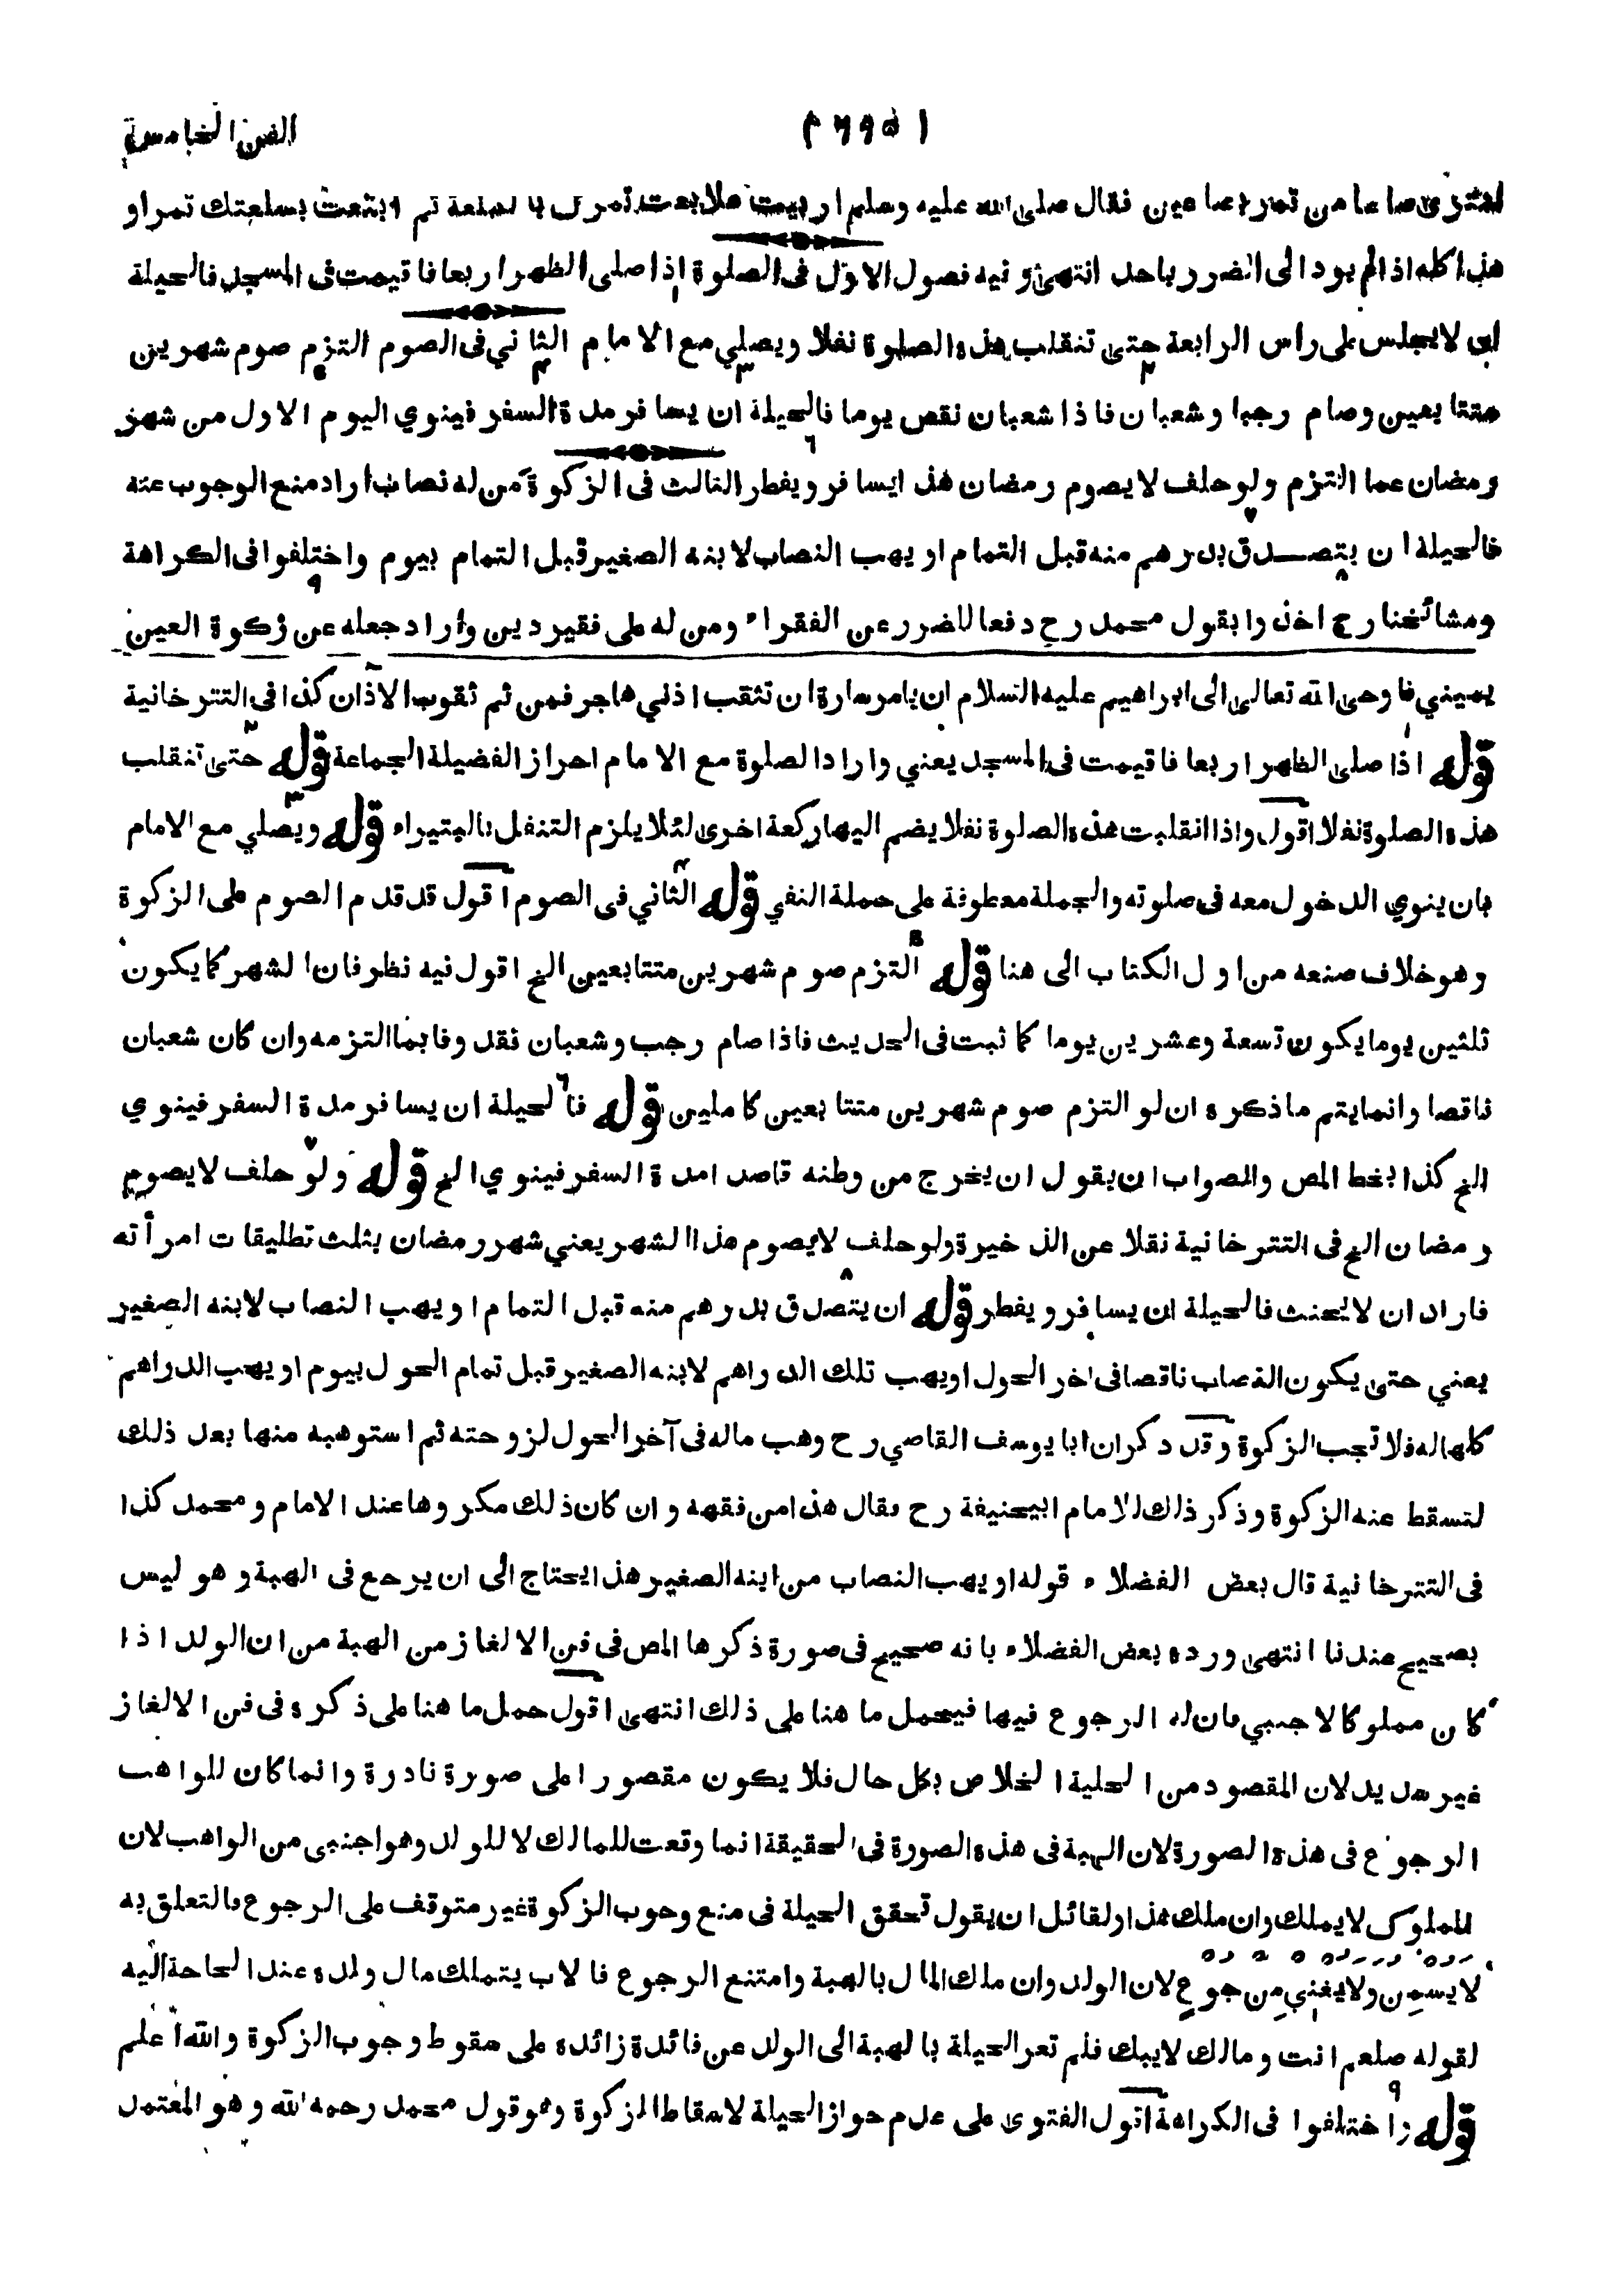 الفن الخامسة
( ٦٩٥ )
اشترى صاعا من تمر بصاعين فقال صلى الله عليه وسلم اربيت هلا بعت تمرك بالسلعة ثم ابتعت بسلعتك تمرا و
هذا كله اذا لم يود الى الضرر باحد انتهى وفيه فصول الاول فى الصلوة اذا صلى الظهر اربعا فاقيمت فى المسجد فالحيلة
ان لا يجلس على راس الرابعة حتى تنقلب هذه الصلوة نفلا ويصلي مع الامام الثاني فى الصوم التزم صوم شهرين
متتابعين وصام رجبا وشعبان فاذا شعبان نقص يوما فالحيلة ان يسافر مدة السفر فينوي اليوم الاول من شهر
رمضان عما التزم ولو حلف لا يصوم رمضان هذا يسافر ويفطر الثالث فى الزكوة من له نصاب اراد منع الوجوب عنه
فالحيلة ان يتصدق بدرهم منه قبل التمام او يهب النصاب لابنه الصغير قبل التمام بيوم واختلفوا فى الكراهة
ومشائخنا رح اخذوا بقول محمد رح دفعا للضرر عن الفقراء ومن له على فقير دين واراد جعله عن زكوة العين
يميني فاوحى الله تعالى الى ابراهيم عليه السلام ان يامر سارة ان تثقب اذني هاجر فمن ثم ثقوب الاذان كذا فى التترخانية
قوله اذا صلى الظهر اربعا فاقيمت فى المسجد يعني واراد الصلوة مع الامام احراز الفضيلة الجماعة قوله حتى تنقلب
هذه الصلوة نفلا اقول واذا انقلبت هذه الصلوة نفلا يضم اليها ركعة اخرى لئلا يلزم التنفل بالبتيراء قوله ويصلي مع الامام
بان ينوي الدخول معه فى صلوته والجملة معطوفة على جملة النفي قوله الثاني فى الصوم اقول قد قدم الصوم على الزكوة
وهو خلاف صنعه من اول الكتاب الى هنا قوله التزم صوم شهرين متتابعين الخ اقول فيه نظر فان الشهر كما يكون
ثلثين يوما يكون تسعة وعشرين يوما كما ثبت فى الحديث فاذا صام رجب وشعبان فقد وفا بما التزمه وان كان شعبان
ناقصا وانما يتم ما ذكره ان لو التزم صوم شهرين متتابعين كاملين قوله فالحيلة ان يسافر مدة السفر فينوي
الخ كذا بخط المص والصواب ان يقول ان يخرج من وطنه قاصدا مدة السفر فينوي الخ قوله ولو حلف لا يصوم
رمضان الخ فى التترخانية نقلا عن الذخيرة ولو حلف لا يصوم هذا الشهر يعني شهر رمضان بثلث تطليقات امرأته
فاراد ان لا يحنث فالحيلة ان يسافر ويفطر قوله ان يتصدق بدرهم منه قبل التمام او يهب النصاب لابنه الصغير
يعني حتى يكون النصاب ناقصا فى اخر الحول او يهب تلك الدراهم لابنه الصغير قبل تمام الحول بيوم او يهب الدراهم
كلها له فلا تجب الزكوة وقد ذكر ان ابا يوسف القاضي رح وهب ماله فى آخر الحول لزوجته ثم استوهبه منها بعد ذلك
لتسقط عنه الزكوة وذكر ذلك للامام ابيحنيفة رح فقال هذا من فقهه وان كان ذلك مكروها عند الامام ومحمد كذا
فى التترخانية قال بعض الفضلاء قوله او يهب النصاب من ابنه الصغير هذا يحتاج الى ان يرجع فى الهبة وهو ليس
بصحيح عندنا انتهى ورده بعض الفضلاء بانه صحيح فى صورة ذكرها المص فى فن الالغاز من الهبة من ان الولد اذا
كان مملوكا لاجنبي فان له الرجوع فيها فيحمل ما هنا على ذلك انتهى اقول حمل ما هنا على ذكره فى فن الالغاز
غير سديد لان المقصود من الحلية الخلاص بكل حال فلا يكون مقصورا على صورة نادرة وانما كان للواهب
الرجوع فى هذه الصورة لان الهبة فى هذه الصورة فى الحقيقة انما وقعت للمالك لا للولد وهو اجنبى من الواهب لان
المملوك لا يملك وان ملك هذا ولقائل ان يقول تحقق الحيلة فى منع وجوب الزكوة غير متوقف على الرجوع فالتعلق به
لا يسمن ولا يغني من جوع لان الولد وان ملك المال بالهبة وامتنع الرجوع فالاب يتملك مال ولده عند الحاجة اليه
لقوله صلعم انت ومالك لابيك فلم تعر الحيلة بالهبة الى الولد عن فائدة زائده على سقوط وجوب الزكوة والله اعلم
قوله واختلفوا فى الكراهة اقول الفتوى على عدم جواز الحيلة لاسقاط الزكوة وهو قول محمد رحمه الله وهو المعتمد